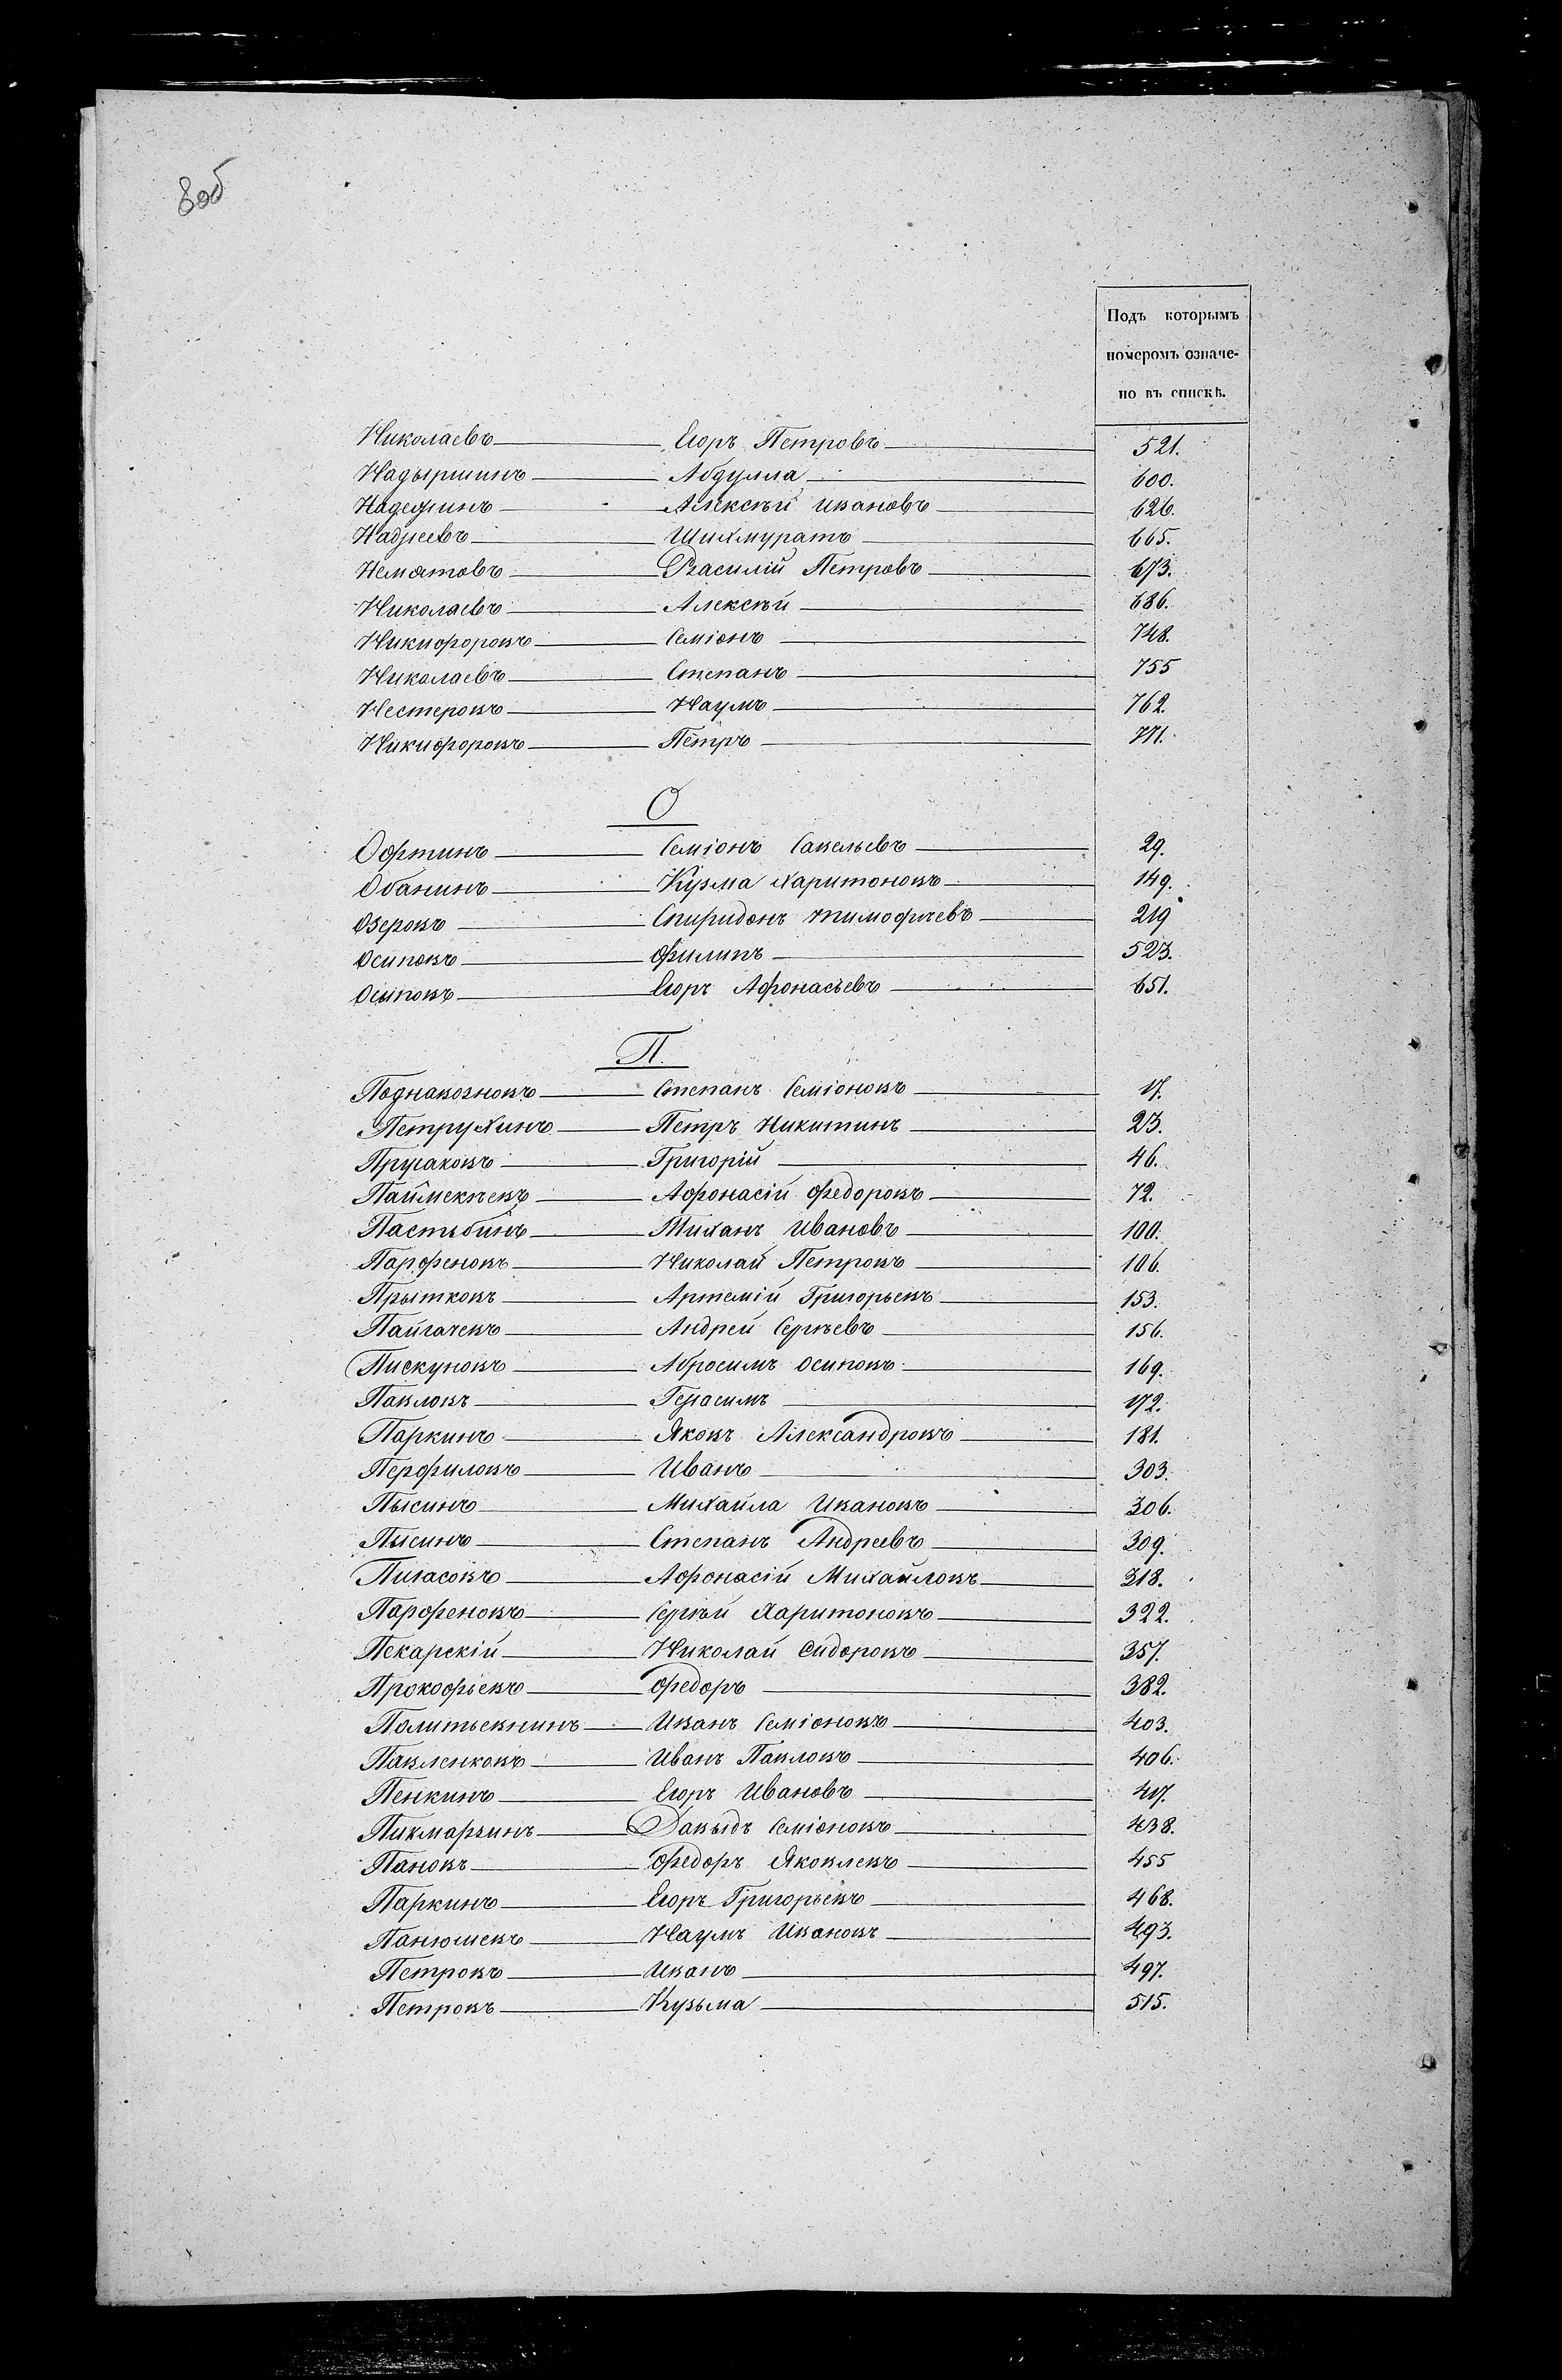 8об
Подъ которымъ
номеромъ означе-
но въ спискѣ.
Николаевъ Егоръ Петровъ 521.
Надыршинъ Абдулла 600.
Надежинъ Алексѣй Ивановъ 626.
Шихмуратъ 665.
Нематовъ Василій Петровъ 673.
Николаевъ Алексѣй 686.
Никифоровъ Семіонъ 748.
Николаевъ Степанъ 755
Нестеровъ Наумъ 762.
Никифоровъ Петръ 771.
О
Офтинъ Семіонъ Савельевъ 29.
Обанинъ Кузма Харитоновъ 149.
Озеровъ Спиридонъ Тимофѣевъ 219
Осиповъ Филипъ 523.
Осыповъ Егоръ Афонасьевъ 651.
П.
Поднавозновъ Степанъ Семіоновъ 17.
Петрухинъ Петръ Никитинъ 23.
Прусаковъ Григорій 46.
Афонасій Федоровъ 72.
Пастьбинъ Тиханъ Ивановъ 100.
Парфеновъ Николай Петровъ 106.
Прытковъ Артемій Григорьевъ 153.
Пайгачевъ Андрей Сергѣевъ 156.
Пискуновъ Абросимъ Осиповъ 169.
Павловъ Герасимъ 172.
Паркинъ Яковъ Александровъ 181.
Перфиловъ Иванъ 303.
Пысинъ Михайла Ивановъ 306.
Пысинъ Степанъ Андреевъ 309.
Пигасовъ Афонасій Михайловъ 318.
Парфеновъ Сергѣй Харитоновъ 322.
Пекарскій Николай Сидоровъ 357.
Прокофьевъ Федоръ 382.
Иванъ Семіоновъ 403.
Павленковъ Иванъ Павловъ 406.
Пенкинъ Егоръ Ивановъ 417.
Давыдъ Семіоновъ 438.
Пановъ Федоръ Яковлевъ 455
Паркинъ Егоръ Григорьевъ 468.
Панюшевъ Наумъ Ивановъ 493.
Петровъ Иванъ 497.
Петровъ Кузьма 515.